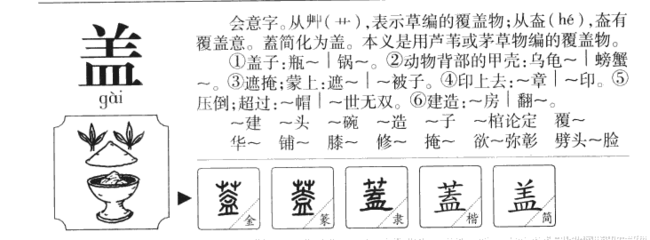 盖
gài
会意字。从艸(艹),表示草编的覆盖物;从盍(hé),盍有
覆盖意。蓋简化为盖。本义是用芦苇或茅草物编的覆盖物。
①盖子:瓶~|锅~。②动物背部的甲壳:乌龟~|螃蟹
~。③遮掩;蒙上:遮~|~被子。④印上去:~章|~印。⑤
压倒;超过:~帽|~世无双。⑥建造:~房|翻~。
~建 ~头 ~碗 ~造 ~子 ~棺论定 覆~
华~ 铺~ 膝~ 修~ 掩~ 欲~弥彰 劈头~脸
蓋 金 蓋 篆 蓋 隶 蓋 楷 盖 简